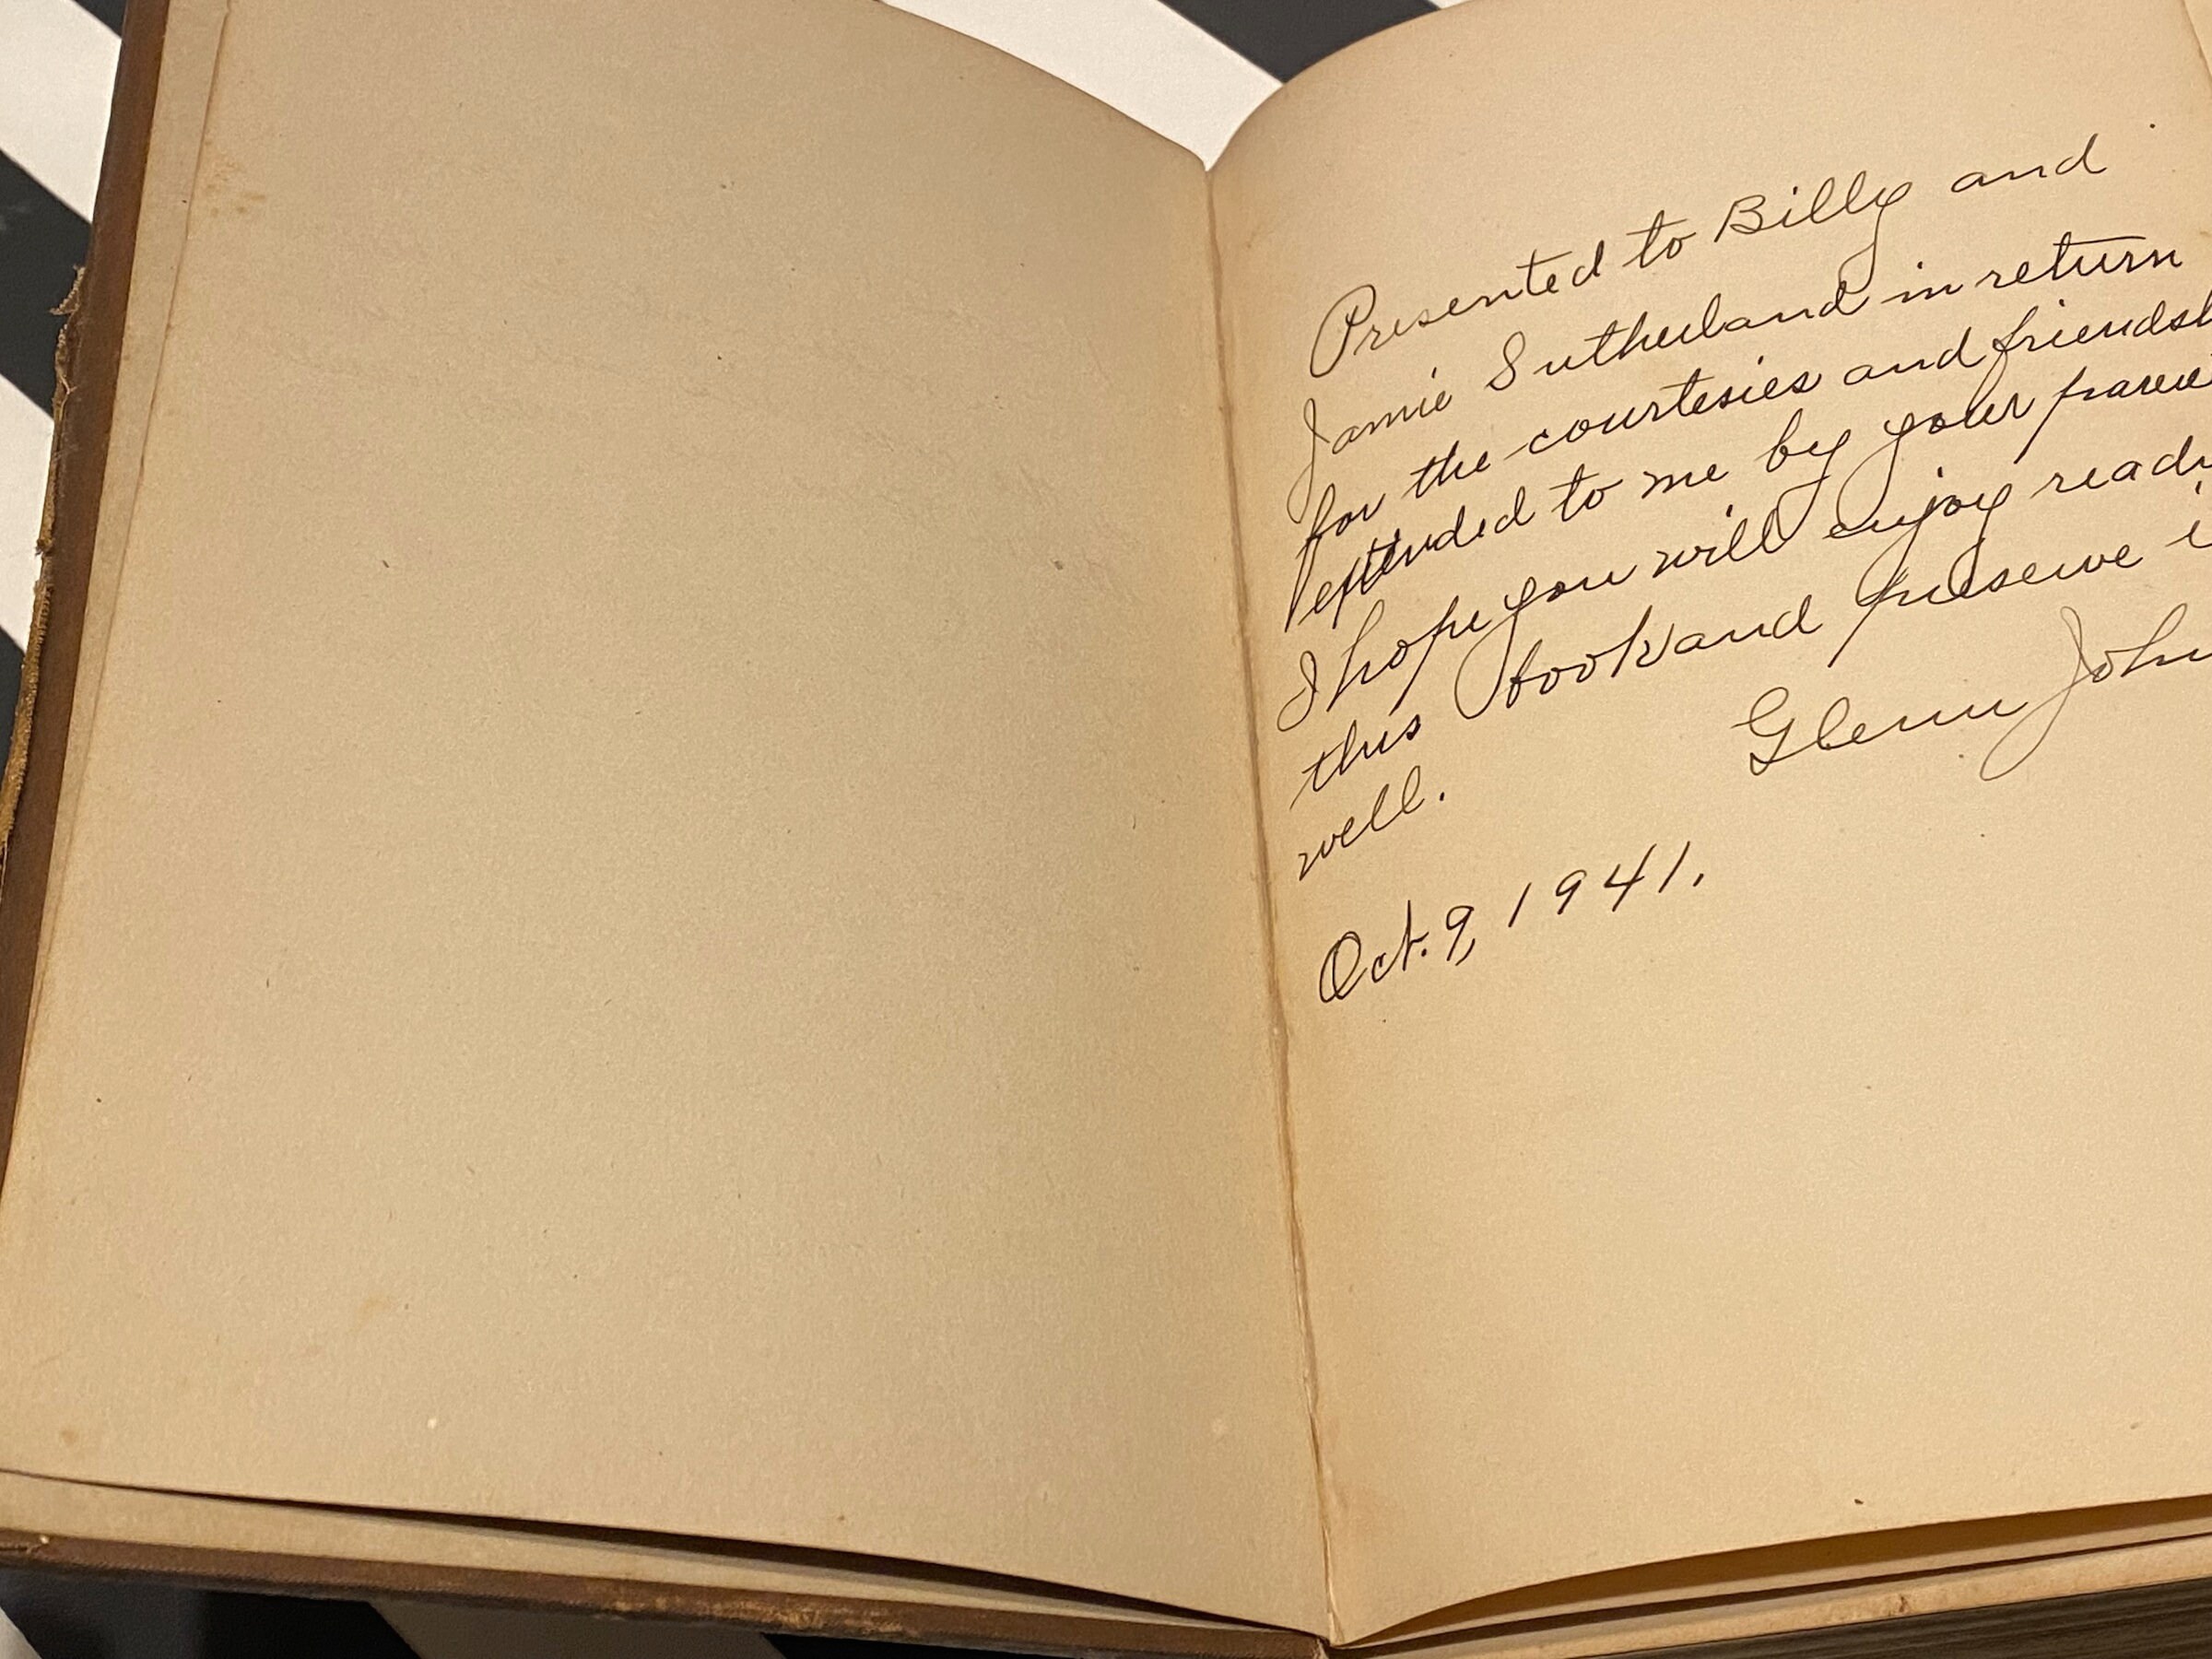 Presented to Billy and
Jamie Sutherland in return
for the courtesies and friendsh
extended to me by your paren
I hope you will enjoy readi
this book and preserve i
well.
Glenn John
Oct. 9, 1941.